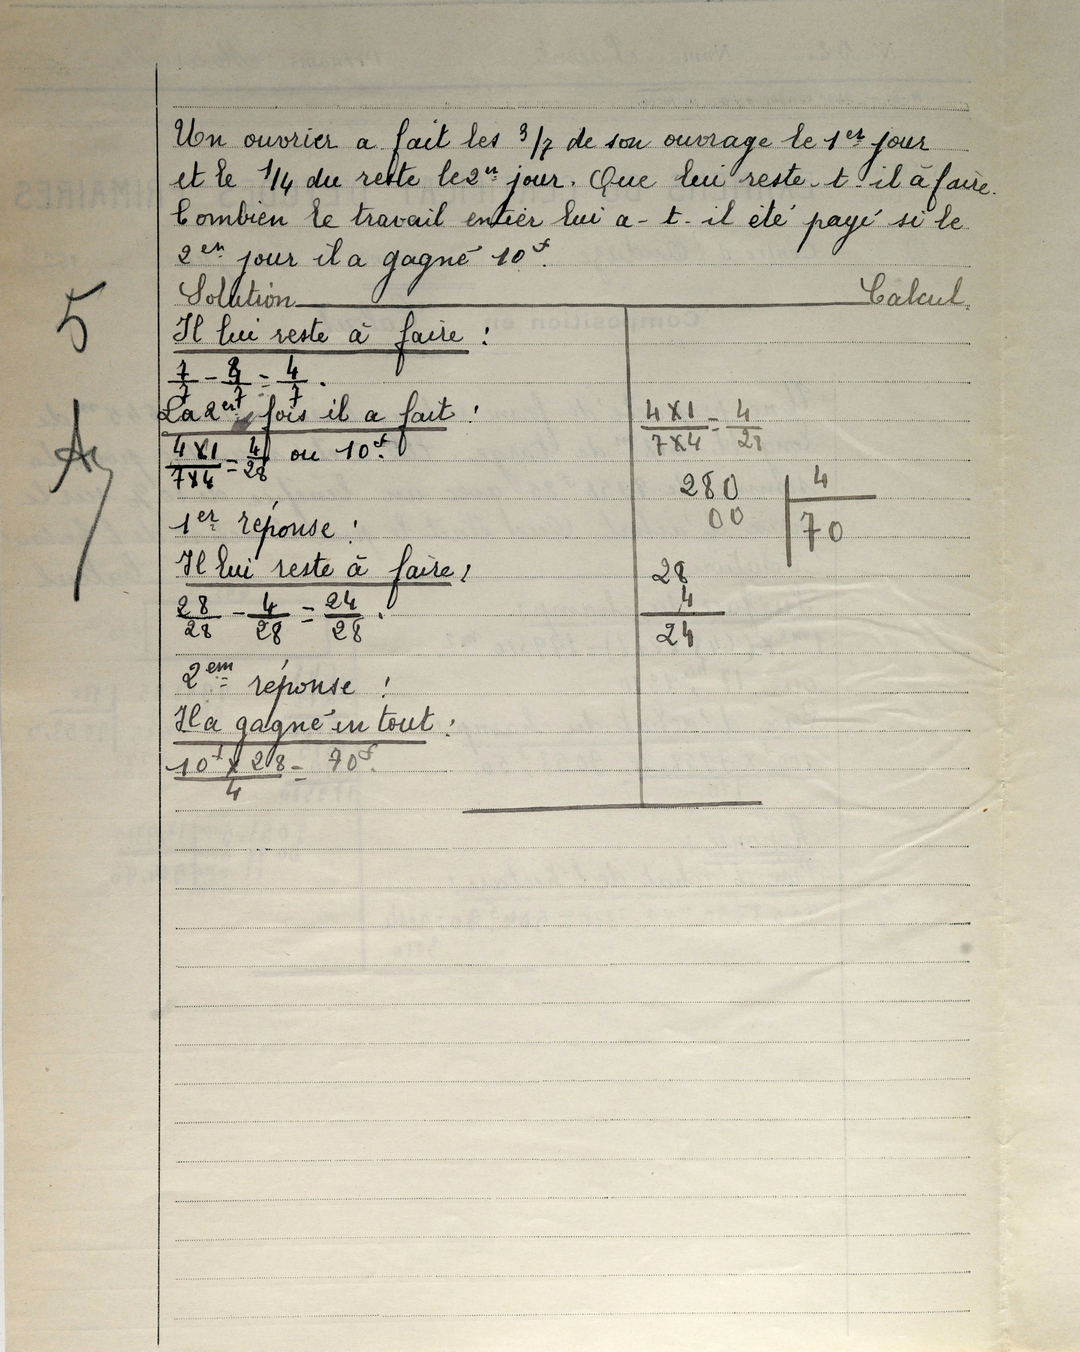 Un ouvrier a fait les 3/7 de son ouvrage le 1er jour
et le 1/4 du reste le 2em jour. Que lui reste-t-il à faire.
Combien le travail entier lui a-t-il été payé si le
2em jour il a gagné 10f.
Solution Calcul
5
Il lui reste à faire :
7/7 - 3/7 = 4/7.
La 2em fois il a fait :
4×1/7×4 = 4/28 ou 10f.
4×1/7×4 = 4/28
280 | 4
00 | 70
1er réponse :
Il lui reste à faire :
28/28 - 4/28 = 24/28.
28
4
24
2em réponse :
Il a gagné en tout :
10f × 28/4 = 70f.